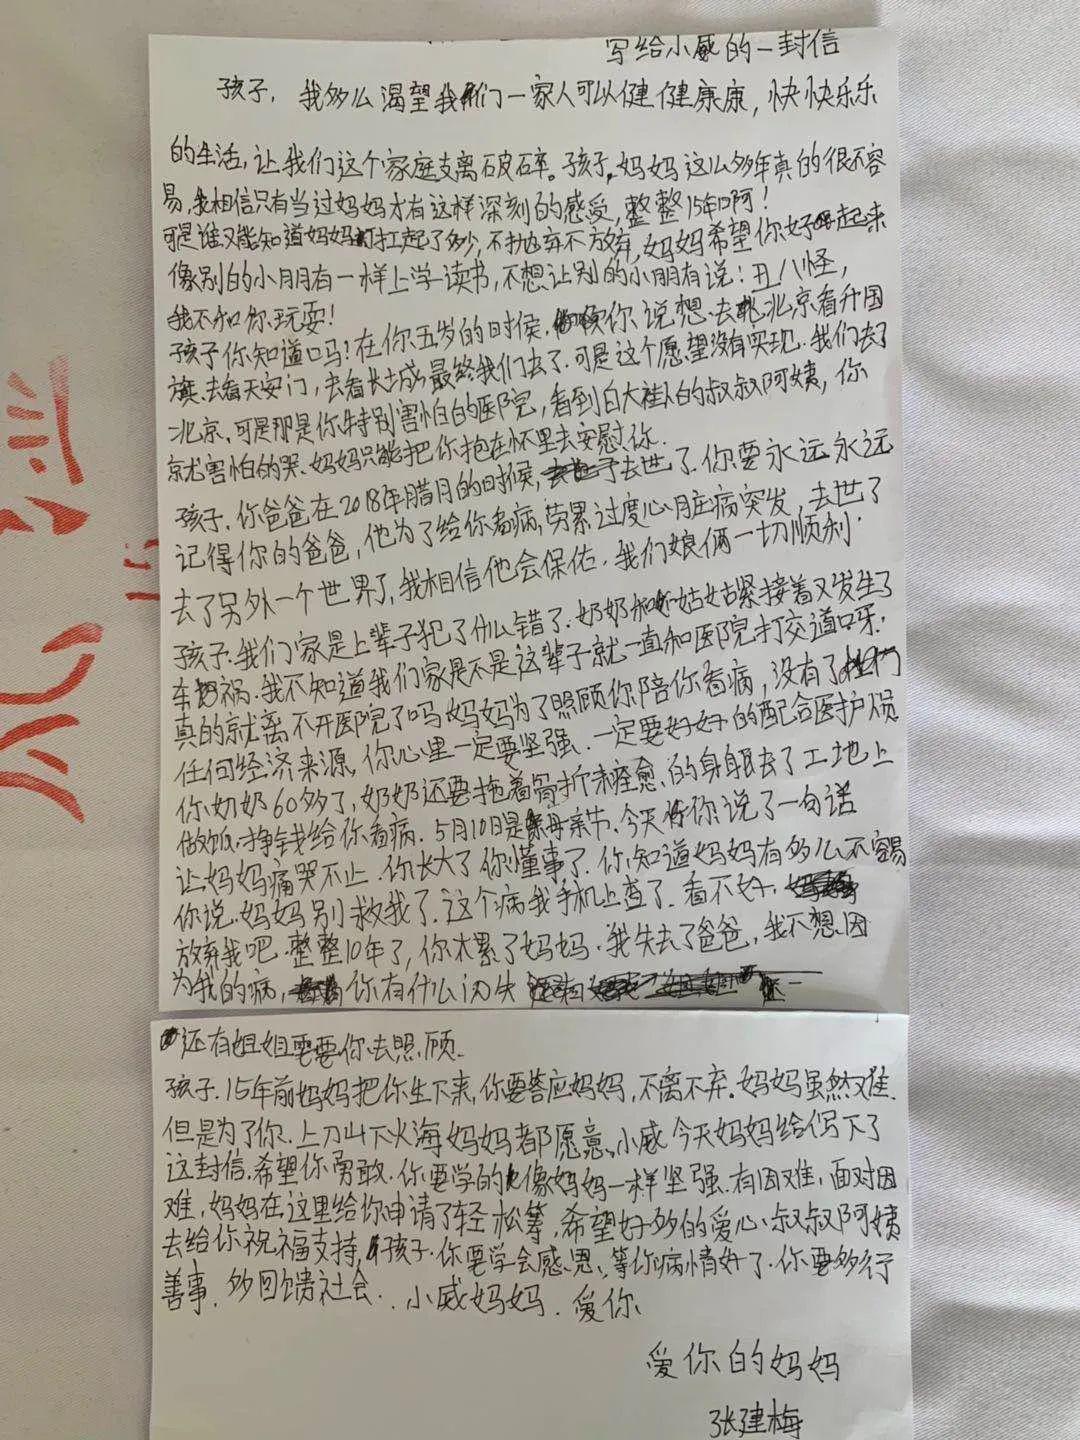 写给小威的一封信
孩子，我多么渴望我们一家人可以健健康康，快快乐乐
的生活，让我们这个家庭支离破碎。孩子，妈妈这么多年真的很不容
易，我相信只有当过妈妈才有这样深刻的感受，整整15年啊！
可是谁又能知道妈妈扛起了多少，不抛弃不放弃，妈妈希望你好起来
像别的小朋有一样上学读书，不想让别的小朋有说：丑八怪，
我不和你玩耍！
孩子你知道吗！在你五岁的时侯，你说想去北京看升国
旗，去看天安门，去看长城，最终我们去了．可是这个愿望没有实现．我们去了
北京，可是那是你特别害怕白的医院，看到白大褂的叔叔阿姨，你
就害怕的哭．妈妈只能把你抱在怀里去安慰你．
孩子．你爸爸在2018年腊月的时侯，去世了．你要永远永远
记得你的爸爸，他为了给你看病，劳累过度心脏病突发，去世了
去了另外一个世界了，我相信他会保佑．我们娘俩一切顺利．
孩子．我们家是上辈子犯了什么错了．奶奶和姑姑紧接着又发生了
车祸．我不知道我们家是不是这辈子就一直和医院打交道呀．
真的就离不开医院了吗妈妈为了照顾你陪你看病，没有了
任何经济来源，你心里一定要坚强．一定要好好的配合医护人员
你奶奶60多了，奶奶还要拖着骨折未痊愈的身躯去了工地上
做饭．挣钱给你看病．5月10日是母亲节．今天你说了一句话
让妈妈痛哭不止．你长大了你懂事了．你知道妈妈有多么不容易
你说．妈妈别救我了．这个病我手机上查了．看不好．
放弃我吧．整整10年了，你太累了妈妈．我失去了爸爸，我不想因
为我的病，你有什么闪失
还有姐姐需要你去照顾．
孩子．15年前妈妈把你生下来，你要答应妈妈，不离不弃。妈妈虽然难．
但是为了你．上刀山下火海妈妈都愿意。小威今天妈妈给你写下了
这封信．希望你勇敢．你要学的像妈妈一样坚强．有困难，面对困
难，妈妈在这里给你申请了轻松筹，希望好多的爱心叔叔阿姨
去给你祝福支持，孩子．你要学会感恩、等你病情好了．你要多行
善事．多回馈社会．．小威妈妈．爱你
爱你的妈妈
张建梅